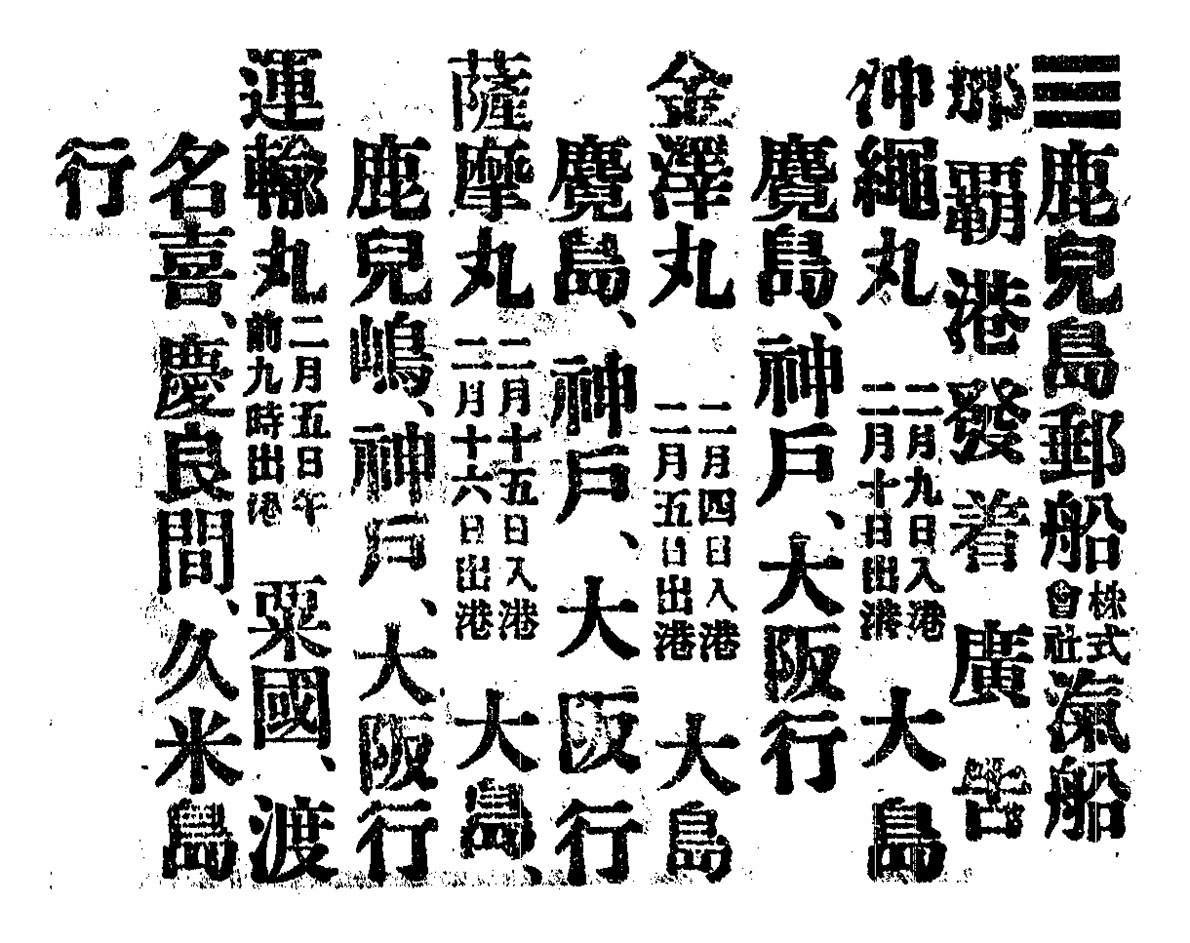 ☰鹿兒島郵船株式會社滊船
那覇港發着廣告
沖繩丸 二月九日入港二月十日出港 大島
麑島、神戸、大阪行
金澤丸 二月四日入港二月五日出港 大島
麑島、神戸、大阪行
薩摩丸 二月十五日入港二月十六日出港 大島、
鹿兒嶋、神戸、大阪行
運輸丸 二月五日午前九時出港 粟國、渡
名喜、慶良間、久米島
行